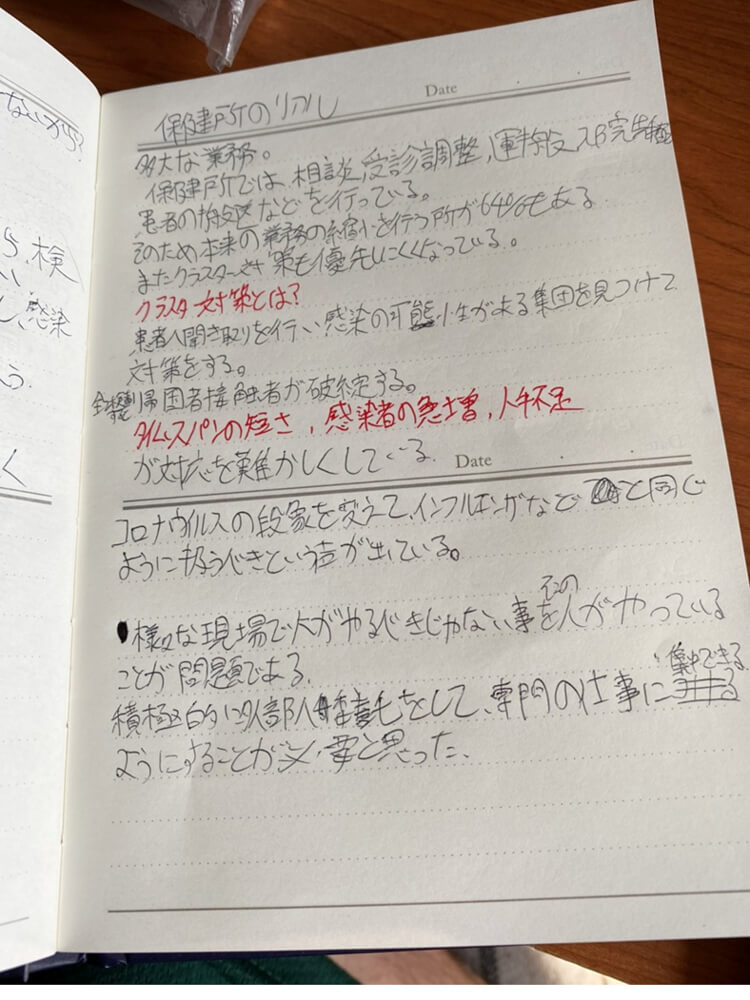 ないから?
検
感染
う
く
Date
保健所のリアル
多大な業務。
保健所では、相談、受診調整、運搬、入院先
患者の搬送などを行っている。
そのため本来の業務の縮小を行う所が64%もある
またクラスター対策も優先しにくくなっている。
クラスタ対策とは?
患者へ聞き取りを行い感染の可能性がある集団を見つけて
対策をする。
帰国者接触者が破綻する。
タイムスパンの短さ,感染者の急増,人手不足
が対応を難かしくしている。
Date
コロナウイルスの段象を変えて、インフルエンザなどと同じ
ように扱うべきという声が出ている。
様々な現場で人がやるべきじゃない事をその人がやっている
ことが問題である。
積極的に外部人委託をして、専門の仕事に集中できる
ようにすることが必要と思った、